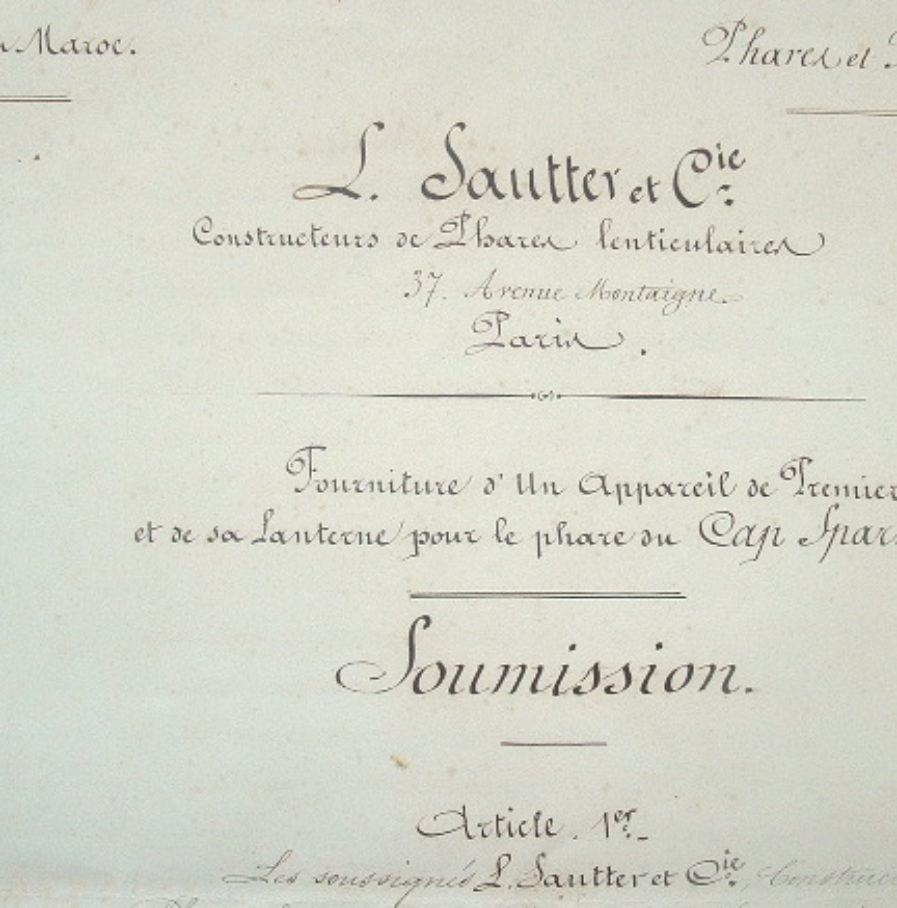 Maroc.
Phares et
L. Sautter et Cie.
Constructeurs de Phares lenticulaires
37. Avenue Montaigne.
Paris.
Fourniture d'Un Appareil de Premier
et de sa Lanterne pour le phare du Cap Spar
Soumission.
Article. 1er.
Les soussignés L. Sautter et Cie, Construc